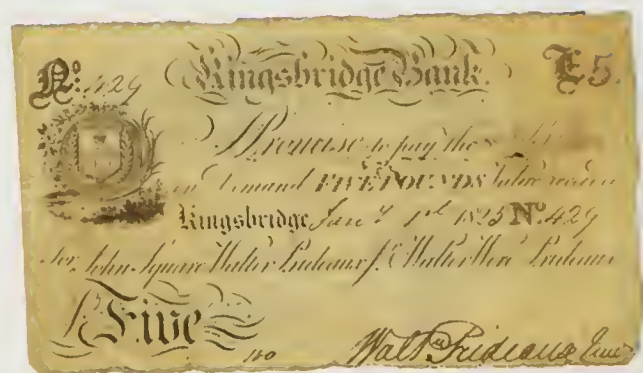 No. 429 Kingsbridge Bank. £5.
I Promise to pay the
on demand FIVE POUNDS Value receiv'd
Kingsbridge Jany. 1st 1825 No. 429
For John Square Walter Prideaux Jr. & Walter Were Prideaux
£Five
Walt Prideaux Junr